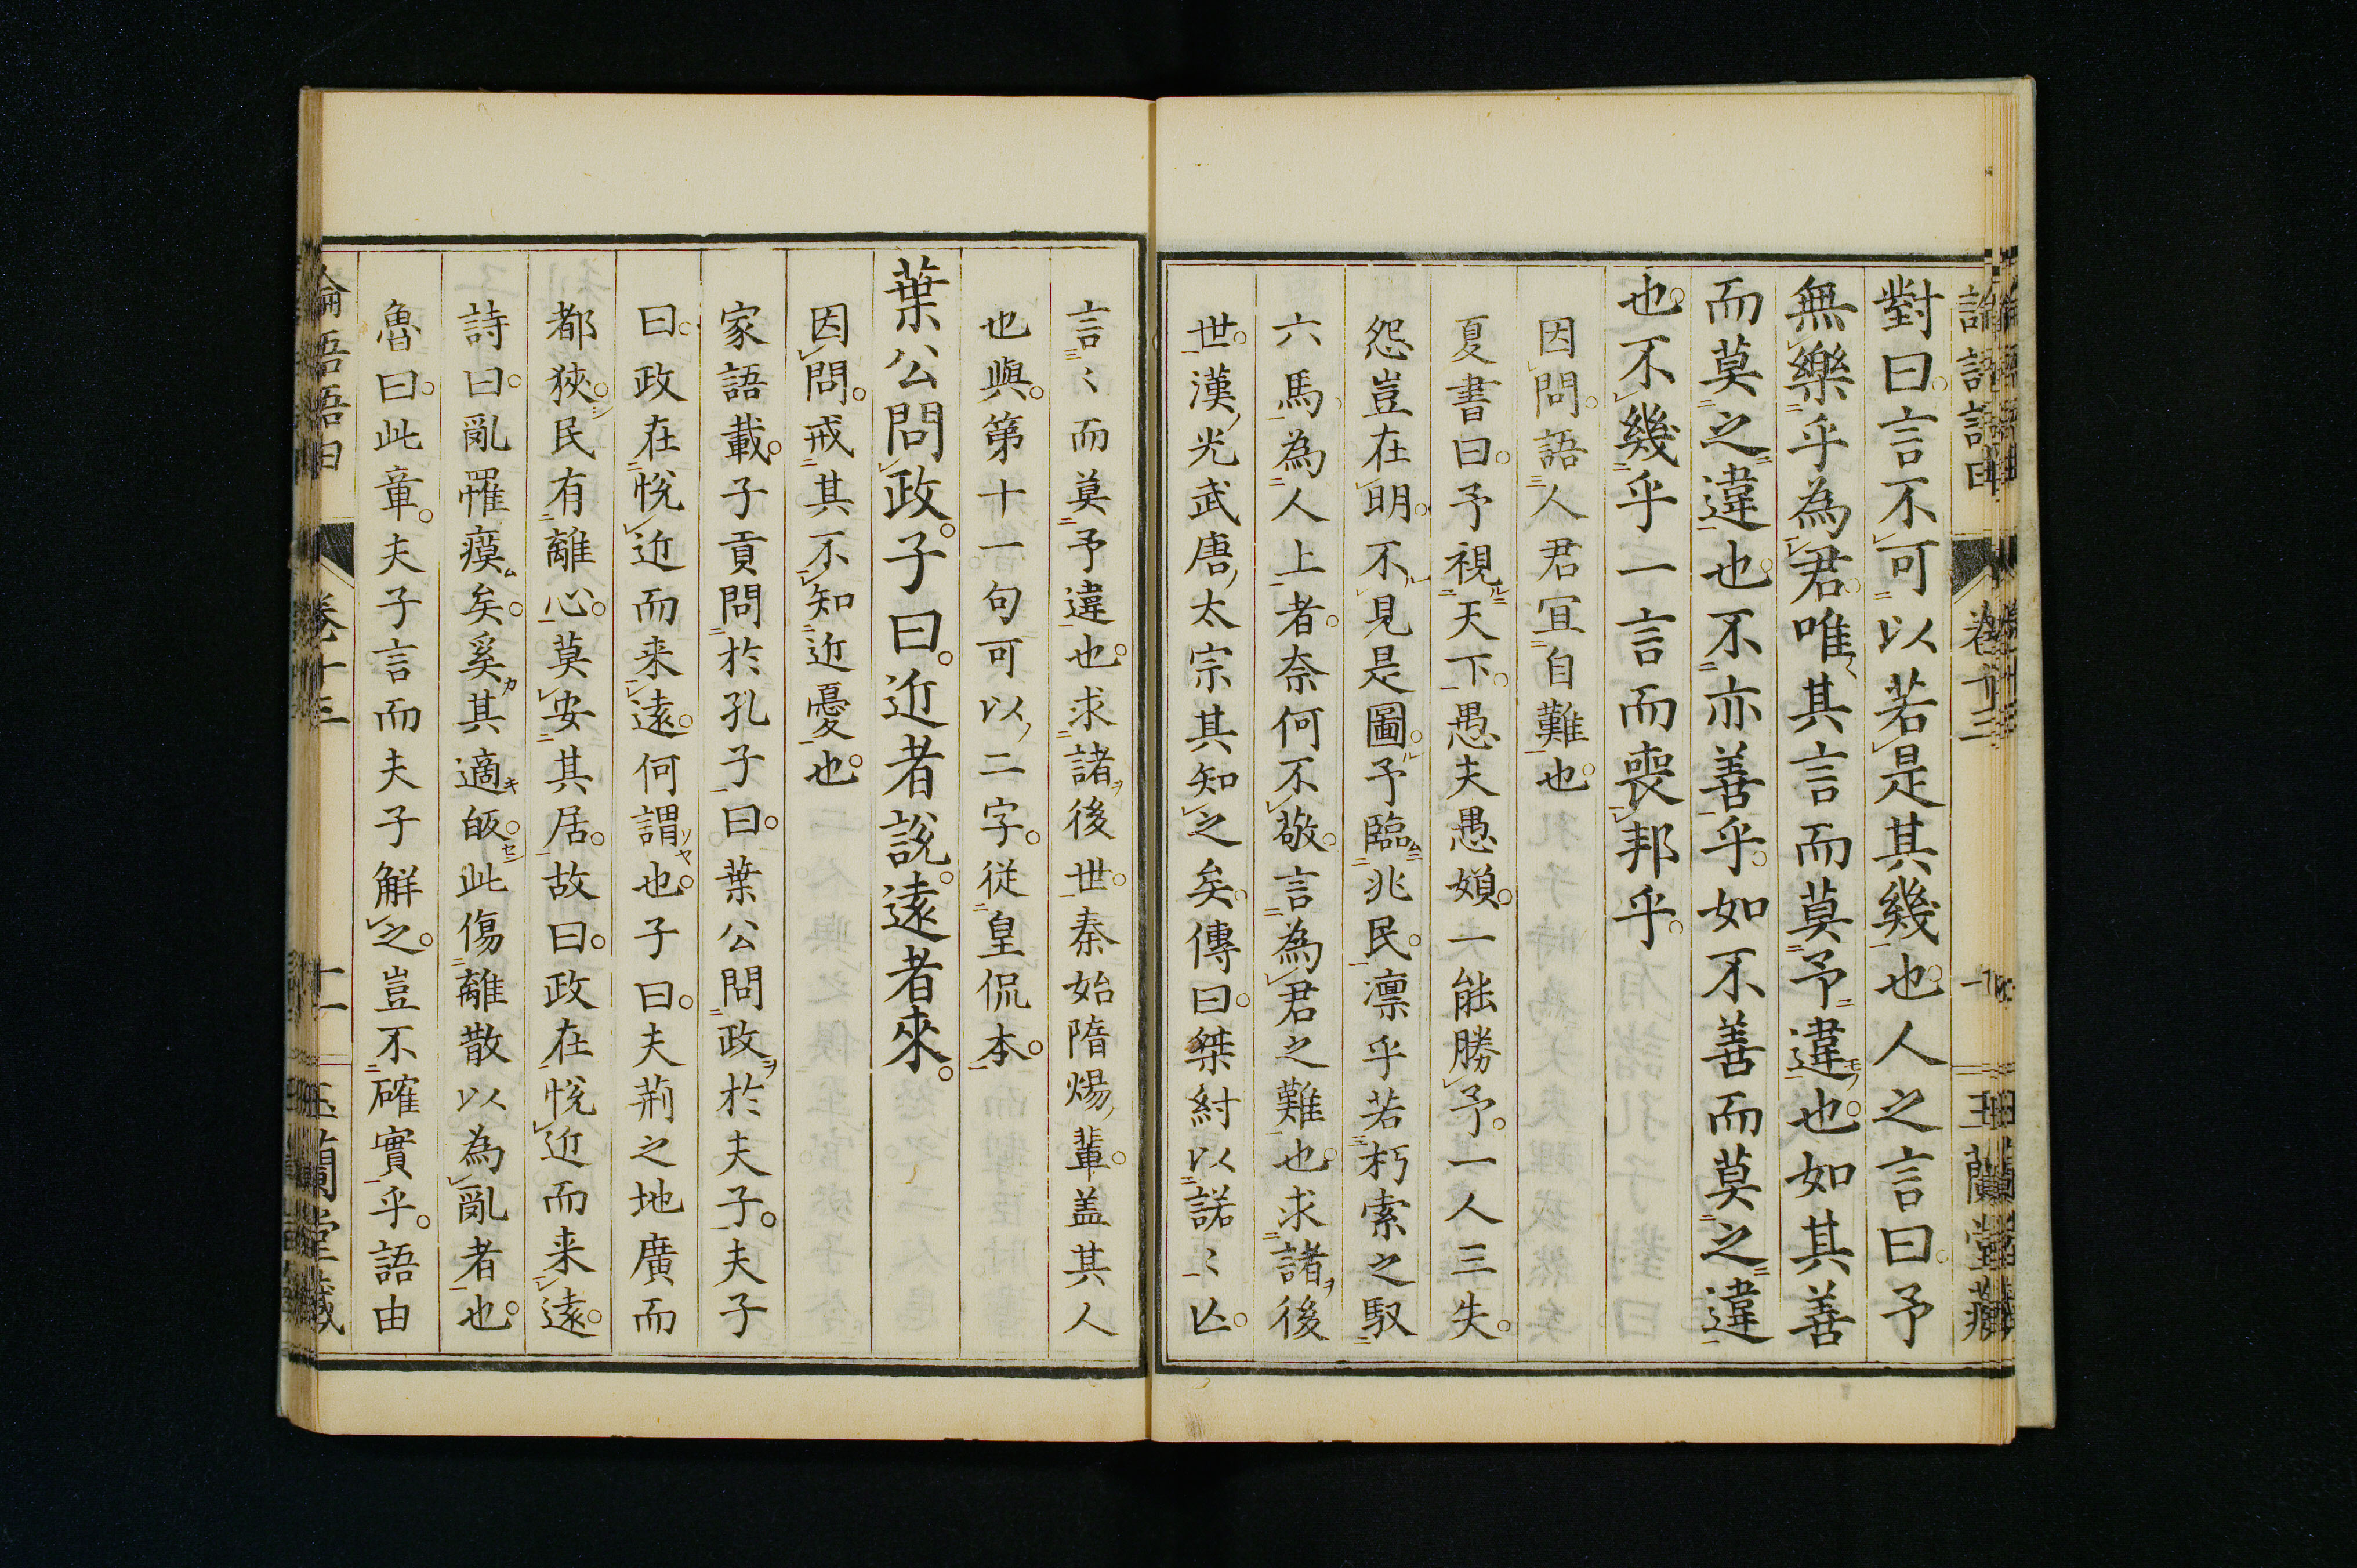 對曰言不可以若是其幾也人之言曰予
無樂乎為君唯其言而莫予違也如其善
而莫之違也不亦善乎如不善而莫之違
也不幾乎一言而喪邦乎
因問語人君宜自難也
夏書曰予視天下愚夫愚婦一能勝予一人三失
怨豈在明不見是圖予臨兆民凛乎若朽索之馭
六馬為人上者奈何不敬言為君之難也求諸後
世漢光武唐太宗其知之矣傳曰桀紂以諾〻亾
言〻而莫予違也求諸後世秦始隋煬輩盖其人
也與第十一句可以二字從皇侃本
葉公問政子曰近者說遠者來
因問戒其不知近憂也
家語載子貢問於孔子曰葉公問政於夫子夫子
曰政在悅近而来遠何謂也子曰夫荊之地廣而
都狹民有離心莫安其居故曰政在悅近而来遠
詩曰亂罹瘼矣奚其適皈此傷離散以為亂者也
魯曰此章夫子言而夫子解之豈不確實乎語由
論語語由 卷十三 十一 玉蘭堂藏